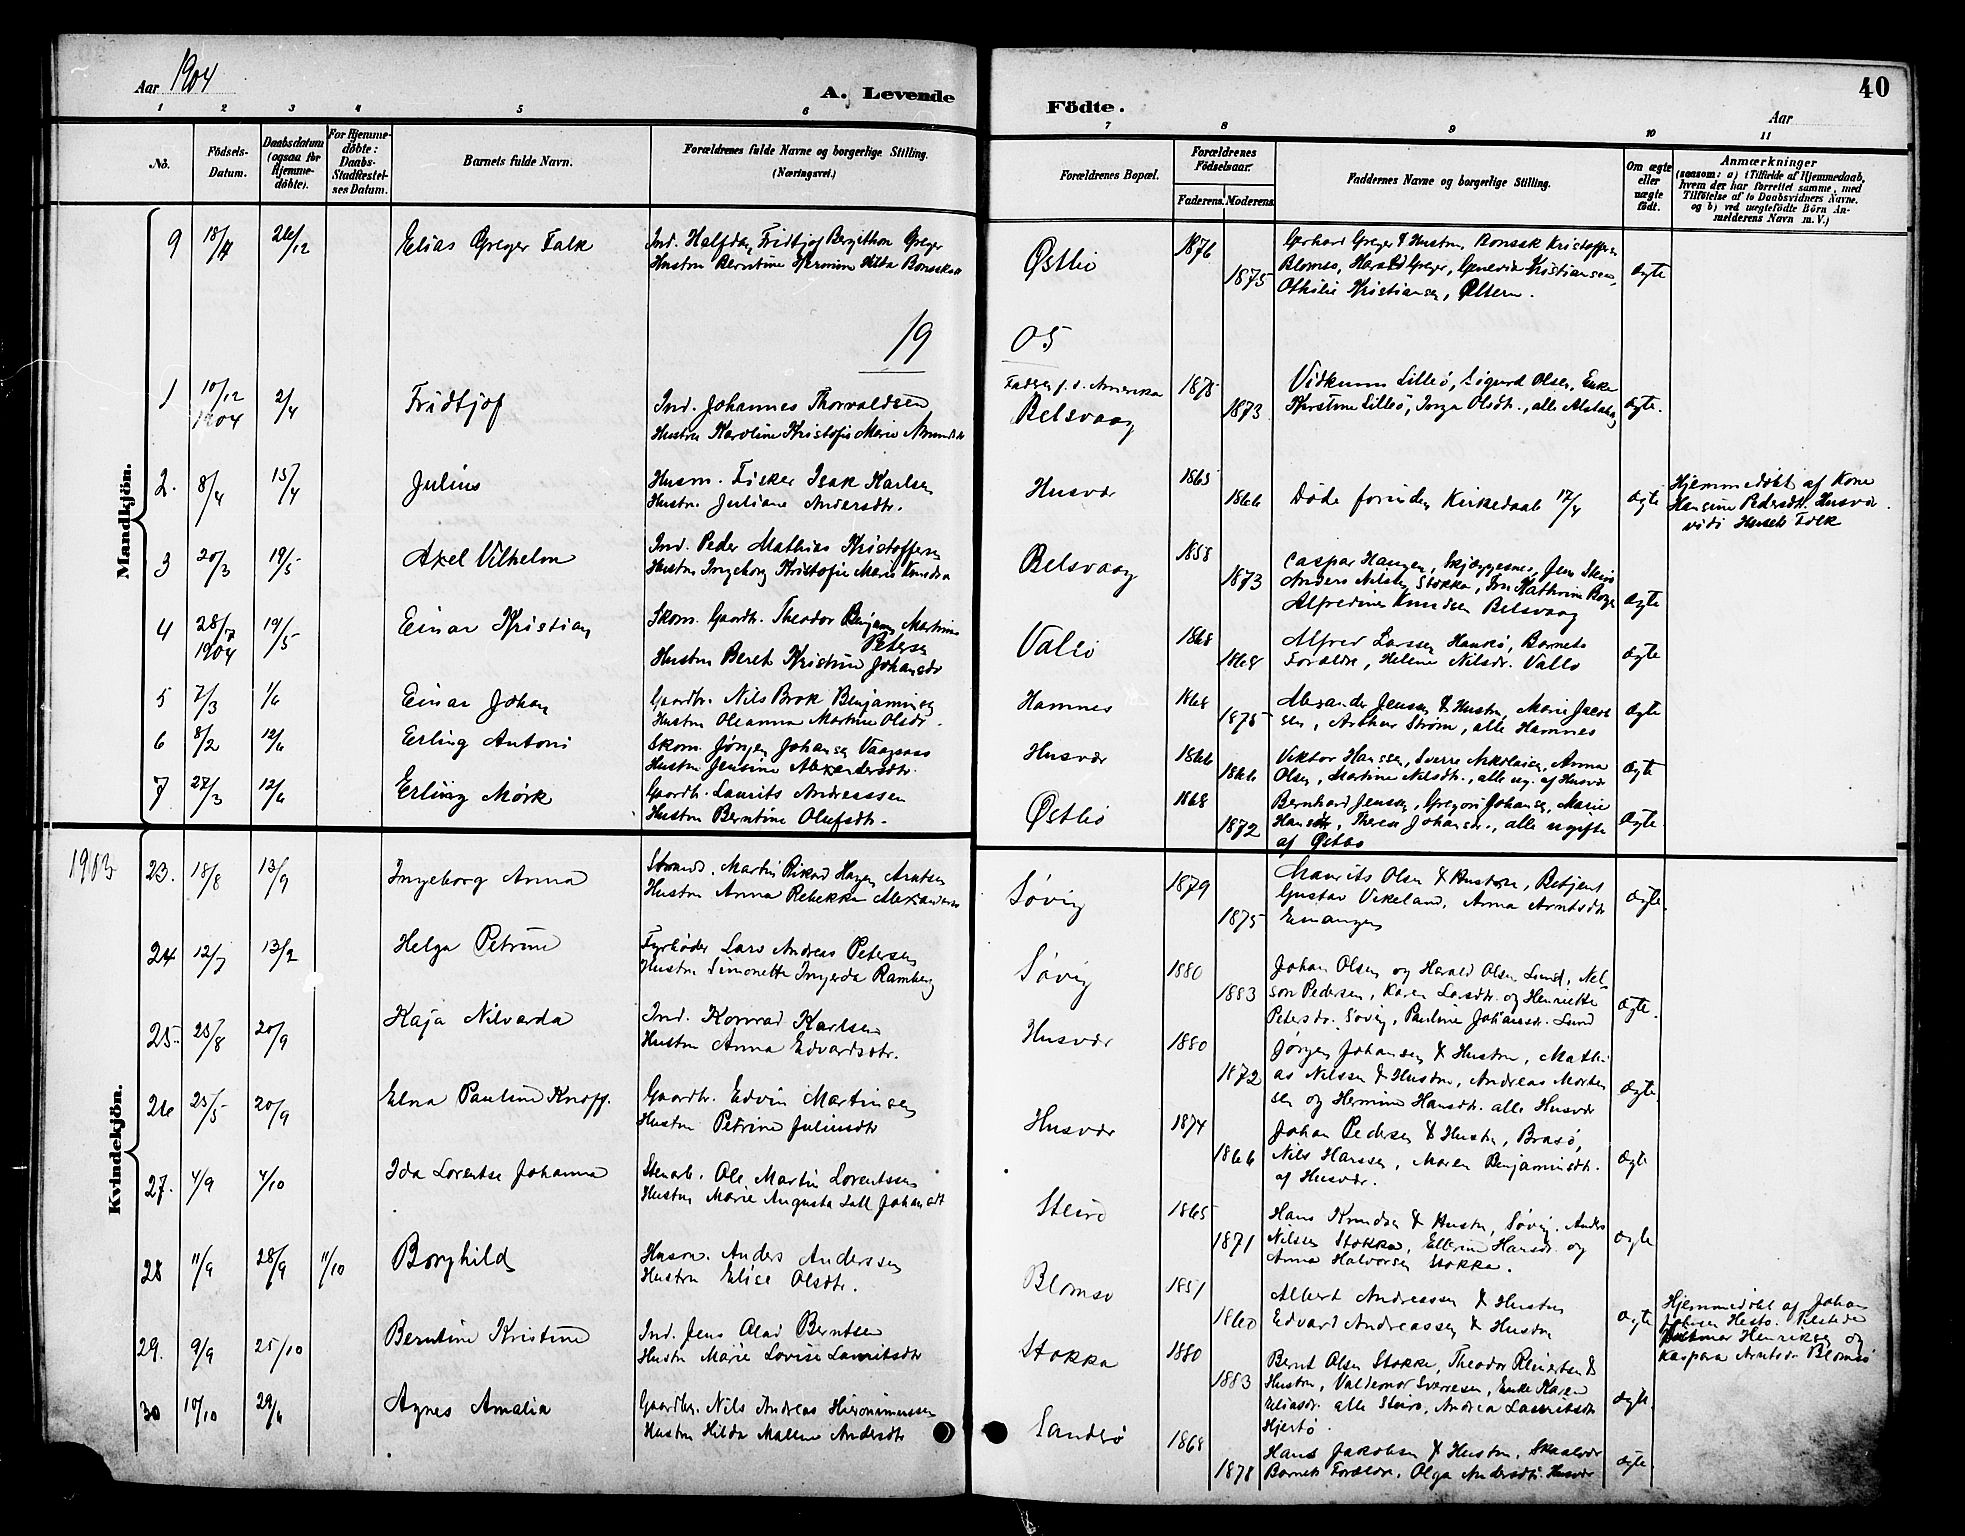 Aar 1904
A. Levende
Födte.
40
Aar
1 2 3 4 5 6 7 8 9 10 11
No.
Födsels-
Datum.
Daabsdatum
(ogsaa for
Hjemme-
döbte).
For Hjemme-
döbte:
Daabs-
Stadfæstel-
ses Datum.
Barnets fulde Navn.
Forældrenes fulde Navne og borgerlige Stilling.
(Næringsvei.)
Forældrenes Bopæl.
Forældrenes
Födselsaar.
Faderens. Moderens.
Faddernes Navne og borgerlige Stilling.
Om ægte
eller
uægte
født.
Anmærkninger
(saasom: a) i Tilfælde af Hjemmedaab,
hvem der har forrettet samme, med
Tilföielse af to Daabsvidners Navne,
og b) ved uægtefödte Börn An-
melderens Navn m. V.)
Mandkjön.
9 18/ 26/12 Elias Greger Falk
Ind. Halfdan Fridtjof Bergithon Greger
Hustru Berntine Hermine Hilda Bonsaksen
Østbø 1876 1875
Gerhard Greger & Hustru, Bonsak Kristoffersen
Blomsø, Harald Greger, Kristiansen,
Othilie Kristiansen,
ægte
19 05
1 10/12 1904 2/4 Fridtjof
Ind. Johannes Thorvaldsen
Hustru Karoline Kristofie Marie
Fader f. t. Amerika
Belsvaag 1878 1873
Vidkunn Lilleø, Sigurd Olsen, Enke
Kirstine Lilleø, Inga Olsdtr., alle Alstahaug
ægte.
2. 8/4 15/4 Julius
Husm. Fisker Isak Karlsen
Hustru Juliane Andersdtr.
Husvær 1865 1866
Døde forinden Kirkedaab 17/4
ægte
Hjemmedøbt af Kone
Hansine Pedersdtr. Husvær.
vidi Husets Folk
3 20/3 19/5 Axel Vilhelm
Ind. Peder Mathias Kristoffersen
Hustru Ingeborg Kristofie Marie Knudsen
Belsvaag 1858 1873
Caspar Haugen, Skjæggesnes, Jens Steirø
Anders Nilsen Stokka, Fru Kathrine Borge
Alfredine Knudsen Belsvaag
ægte
4 28/7 1904 19/5 Einar Kristian
Skom. Gaardb. Theodor Benjamin Martinus
Petersen
Hustru Beret Kristine Johansdtr
Valø 1868 1868
Alfred Larsen Haukø, Barnets
Forældre, Helene Nilsdr. Valø
ægte
5 7/3 1/6 Einar Johan
Gaardbr. Nils Brok Benjaminsen
Hustru Oleanna Martine Olsdtr.
Hamnes 1868 1875
Alexander Jensen & Hustru, Marie Jacob
sen, Arthur Strøm, alle Hamnes
ægte
6 8/2 12/6 Erling Antoni
Skom. Jørgen Johansen Vaagsaas
Hustru Jensine Alexandersdtr.
Husvær 1866 1866
Viktor Hansen, Sverre Nikolaisen, Anna
Olsen, Martine Nilsdtr., alle ug. af Husvær
ægte
7 27/3 12/6 Erling Mørk
Gaardb. Laurits Andreassen
Hustru Berntine Olufsdtr.
Østbø 1868 1872
Bernhard Jensen, Gregori Johansen, Marie
Hansdtr, Therese Johansdr., alle ugifte
af Østbø
ægte.
Kvindekjön.
1903
23. 18/8 13/9 Ingeborg Anna
Styrmand. Martin Rikard Hagen Arntsen
Hustru Anna Rebekka Alexandersen
Søvig 1879 1875
Maurits Olsen & Hustru, Betjent
Gustav Vikeland, Anna Arntsdtr
ægte.
24 12/7 13/9 Helga Petrine
Fyrbøder Lars Andreas Petersen
Hustru Simonette Ingerda Ramberg
Søvig 1880 1883
Johan Olsen og Harald Olsen Lund, Nel-
son Pedersen, Karen Larsdtr. og Henriette
Petersdr. Søvig, Pauline Johansdr. Lund
ægte.
25. 23/8 20/9 Kaja Nilvarda
Ind. Konrad Karlsen
Hustru Anna Edvardsdtr.
Husvær 1880 1872
Jørgen Johansen & Hustru, Mathi
as Nilssen & Hustru, Andreas Morten
sen og Hermine Hansdtr. alle Husvær
ægte.
26 25/5 20/9 Elna Pauline Knoff.
Gaardbr. Edvin Martinsen
Hustru Petrine Juliusdtr
Husvær 1874 1866
Johan Pedersen & Hustru, Brasø,
Nils Hanssen, Maren Benjaminsdtr.
af Husvær.
ægte
27. 4/9 4/10 Ida Lorentse Johanna
Stenarb. Ole Martin Lorentssen
Hustru Marie Augusta Johansdt
Steirø 1865 1871
Hans Knudsen & Hustru, Søvig, Anders
Nilsen Stokka, Ellerine Hansdr. og
Anna Halvorsen Stokka.
ægte
28 11/9 28/9 11/10 Borghild
Husm. Anders Anderssen
Hustru Elise Olsdtr.
Blomsø 1851 1860
Albert Andreassen & Hustru
Edvard Andreassen & Hustru
ægte
Hjemmedøbt af Johan
Johnsen Hestø. Tilstede
Hilmar Henriksen og
Kaspara Arntsdr Blomsø
29. 9/9 25/10 Berntine Kristine
Ind. Jens Olai Berntsen
Hustru Marie Lovise Lauritsdtr
Stokka 1880 1883
Bernt Olsen Stokke, Theodor Reinertsen &
Hustru, Valdemar Sverresen, Enke Karen
Eliasdr. alle Steirø, Andrea Lauritsdtr
Hjertø.
ægte.
30 10/10 29/6 Agnes Amalia
Gaardbr. Nils Andreas Hieronimussen
Hustru Hilda Malene Andersdtr
Sandsø 1868 1878
Hans Jakobsen & Hustru, Skaalvær
Barnets Forældre, Olga Andersdtr. Husvær
ægte.